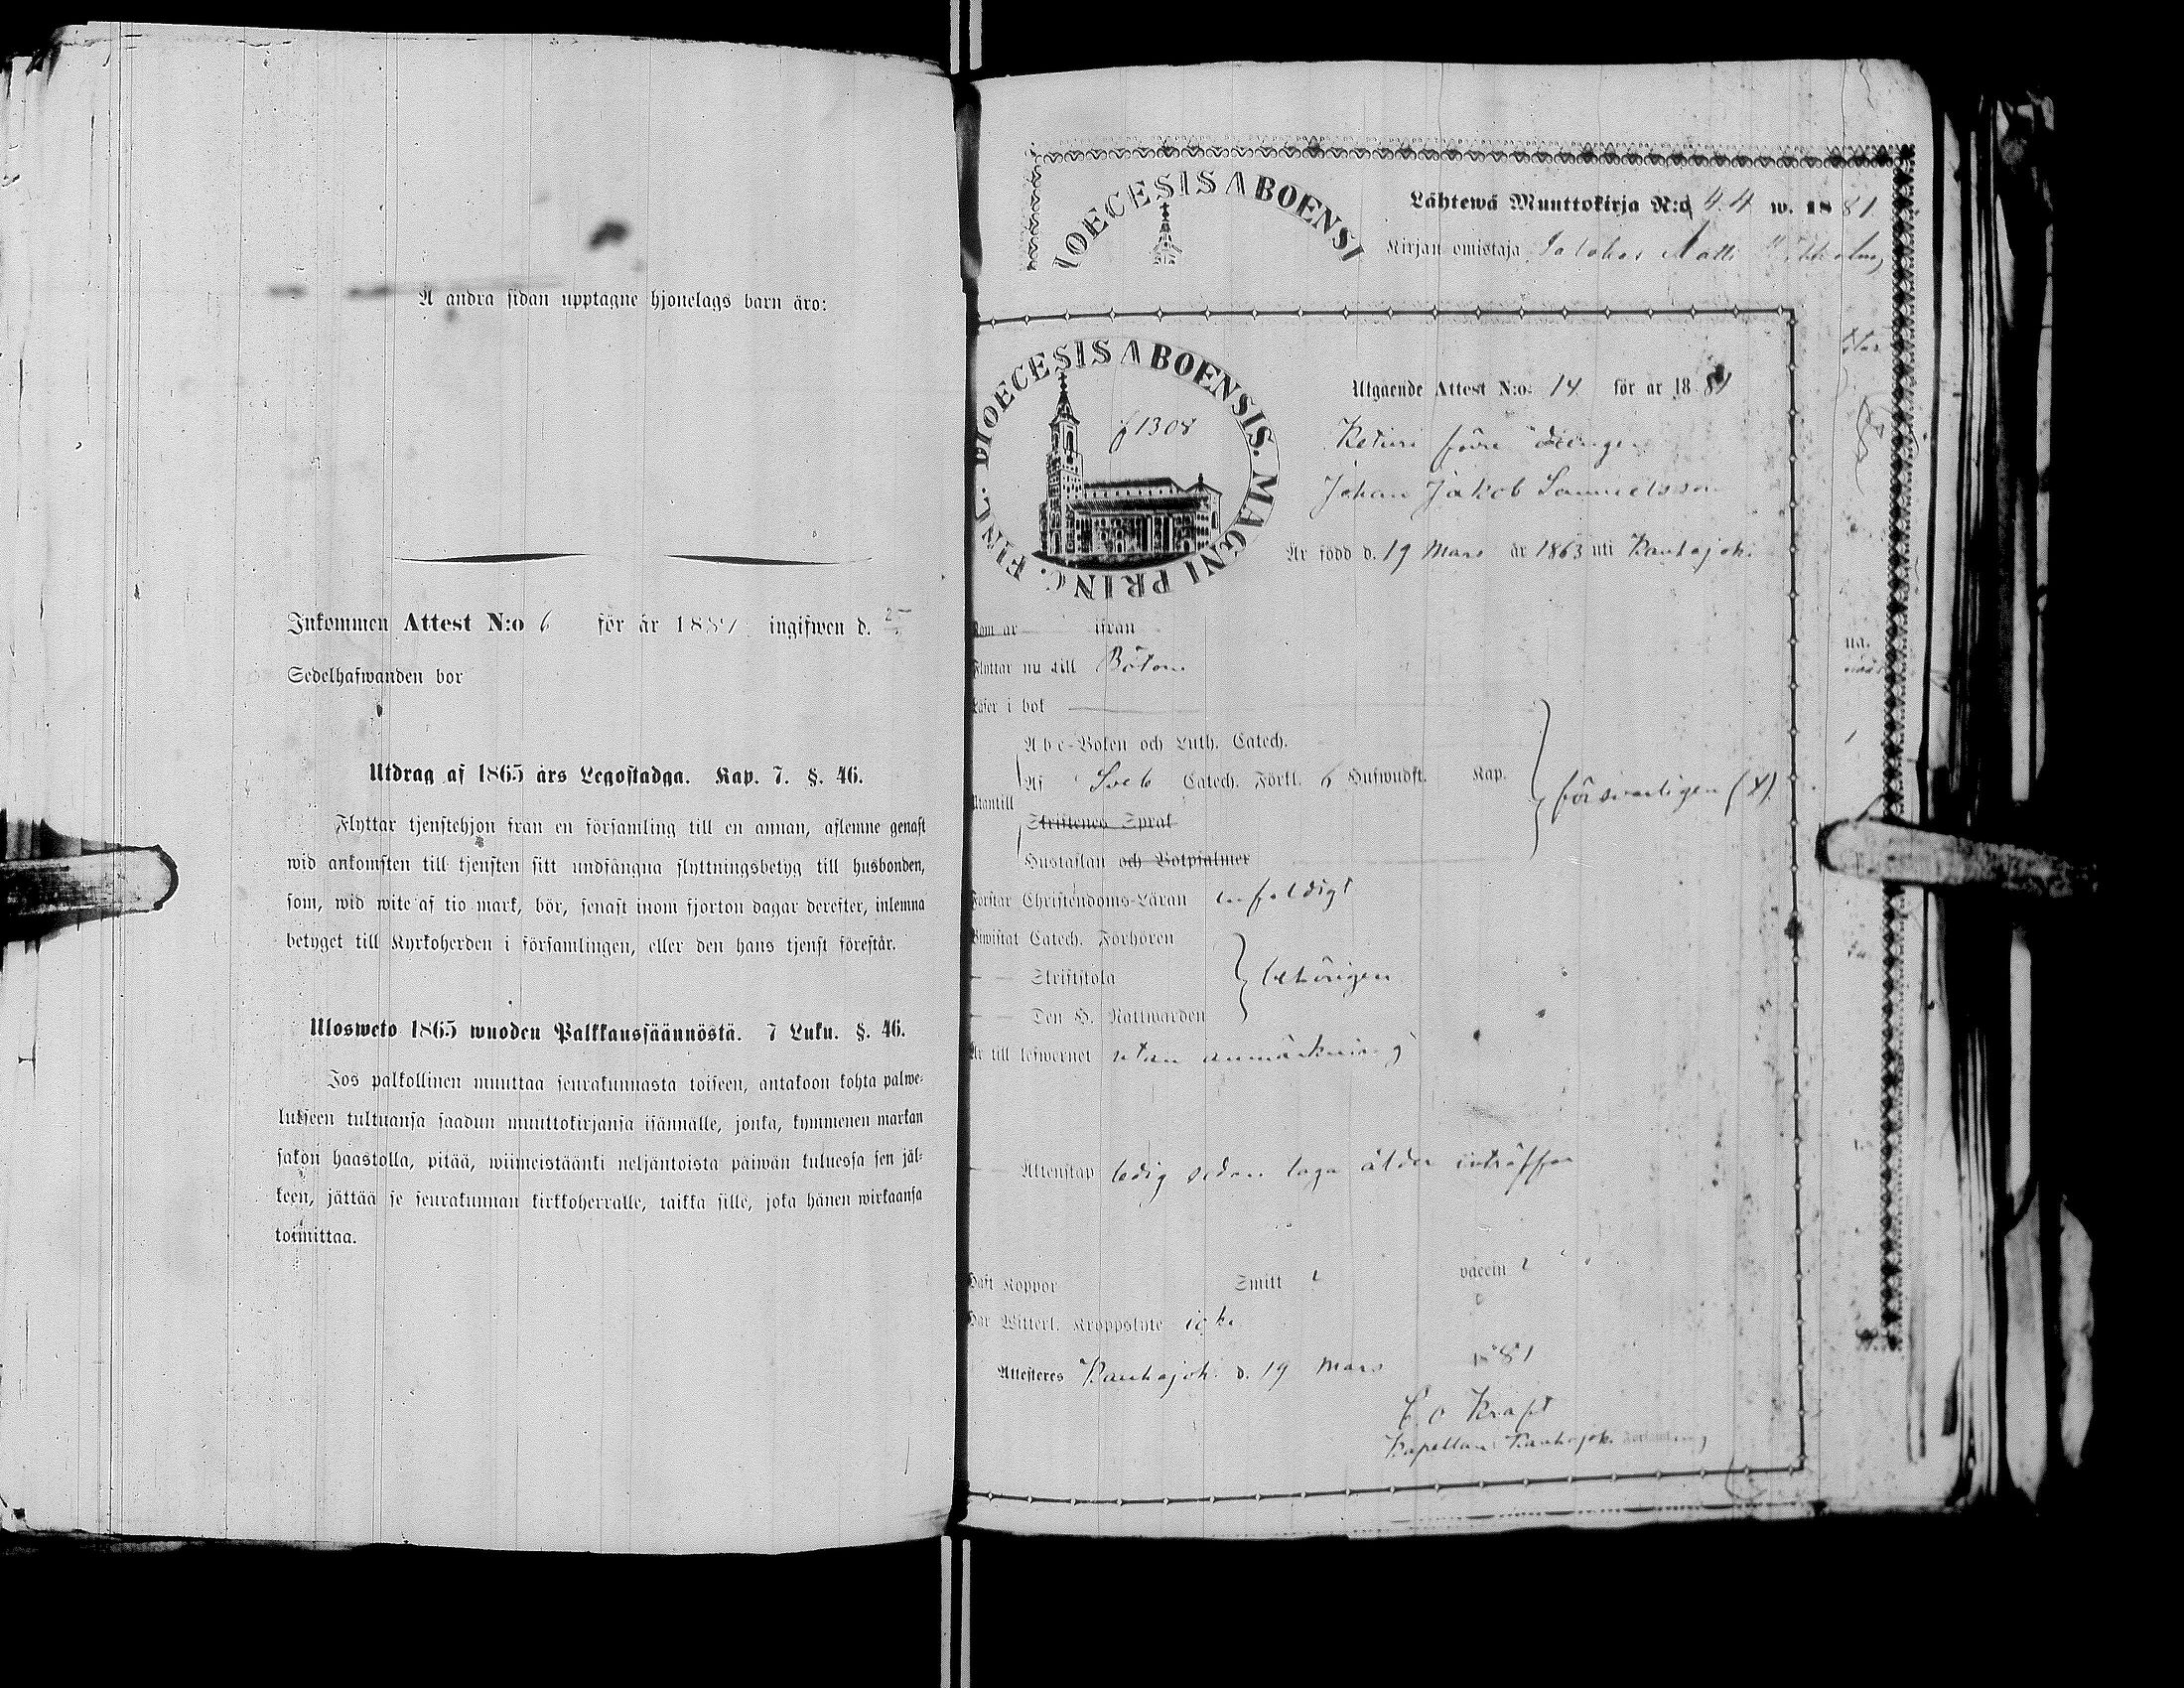 A andra sidan upptagne hjonelags barn äro:
Inkommen Attest N:o 6 för år 1881 ingifwen d.
Sedelhafwanden bor
Utdrag af 1865 års Legostadga. Kap. 7. §. 46.
Flyttar tjenstehjon från en församling till en annan, aflemne genast
wid ankomsten till tjensten sitt undfångna flyttningsbetyg till husbonden,
som, wid wite af tio mark, bör, senast inom fjorton dagar derefter, inlemna
betyget till Kyrkoherden i församlingen, eller den hans tjenst förestår.
Ulosweto 1865 wuoden Palkkaussäännöstä. 7 Luku. §. 46.
Jos palkollinen muuttaa seurakunnasta toiseen, antakoon kohta palwe-
lukseen tultuansa saadun muuttokirjansa isännälle, jonka, kymmenen markan
sakon haastolla, pitää, wiimeistäänki neljäntoista päiwän kuluessa sen jäl-
keen, jättää se seurakunnan kirkkoherralle, taikka sille, joka hänen wirkaansa
toimittaa.
IOECESIS ABOENSI
Lähtewä Muuttokirja N:o 44 w. 1881
Kirjan omistaja Matti
DIOECESIS ABOENSIS. MAGNI PRINC. FINL.
f 1308
Utgående Attest N:o 14 för år 1881
Johan Jakob Samuelsson
Är född d. 19 Mars år 1863 uti Kauhajoki
Kom år ifrån
Flyttar nu till Bötom
Läser i bok
Abc-Boken och Luth. Catech.
Utantill
Af Sveb Catech. Förkl. 6 Hufwudst. Kap.
försvarligen (X)
Skriftenes Språk
Hustaflan och Botpsalmer
Förstår Christendoms-Läran enfaldigt
Bewistat Catech. Förhören
— — Skriftskola
behörigen
— — Den H. Nattwarden
Är till lefwernet utan anmärkning
— Äktenskap ledig sedan laga ålder inträffar
Haft Koppor Smitt vaccin
Har Witterl. Kroppslyte icke
Attesteres Kauhajoki d. 19 Mars 1881
C O Kraft
Kapellan i Kauhajoki